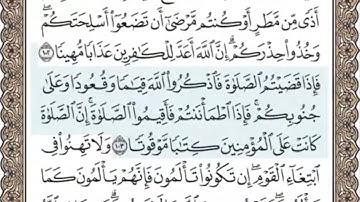 أَذًى مِّن مَّطَرٍ أَوْ كُنتُم مَّرْضَىٰٓ أَن تَضَعُوٓا۟ أَسْلِحَتَكُمْ ۖ
وَخُذُوا۟ حِذْرَكُمْ ۗ إِنَّ ٱللَّهَ أَعَدَّ لِلْكَٰفِرِينَ عَذَابًا مُّهِينًا ١٠٢
فَإِذَا قَضَيْتُمُ ٱلصَّلَوٰةَ فَٱذْكُرُوا۟ ٱللَّهَ قِيَٰمًا وَقُعُودًا وَعَلَىٰ
جُنُوبِكُمْ ۚ فَإِذَا ٱطْمَأْنَنتُمْ فَأَقِيمُوا۟ ٱلصَّلَوٰةَ ۚ إِنَّ ٱلصَّلَوٰةَ
كَانَتْ عَلَى ٱلْمُؤْمِنِينَ كِتَٰبًا مَّوْقُوتًا ١٠٣ وَلَا تَهِنُوا۟ فِى
ٱبْتِغَآءِ ٱلْقَوْمِ ۖ إِن تَكُونُوا۟ تَأْلَمُونَ فَإِنَّهُمْ يَأْلَمُونَ كَمَا